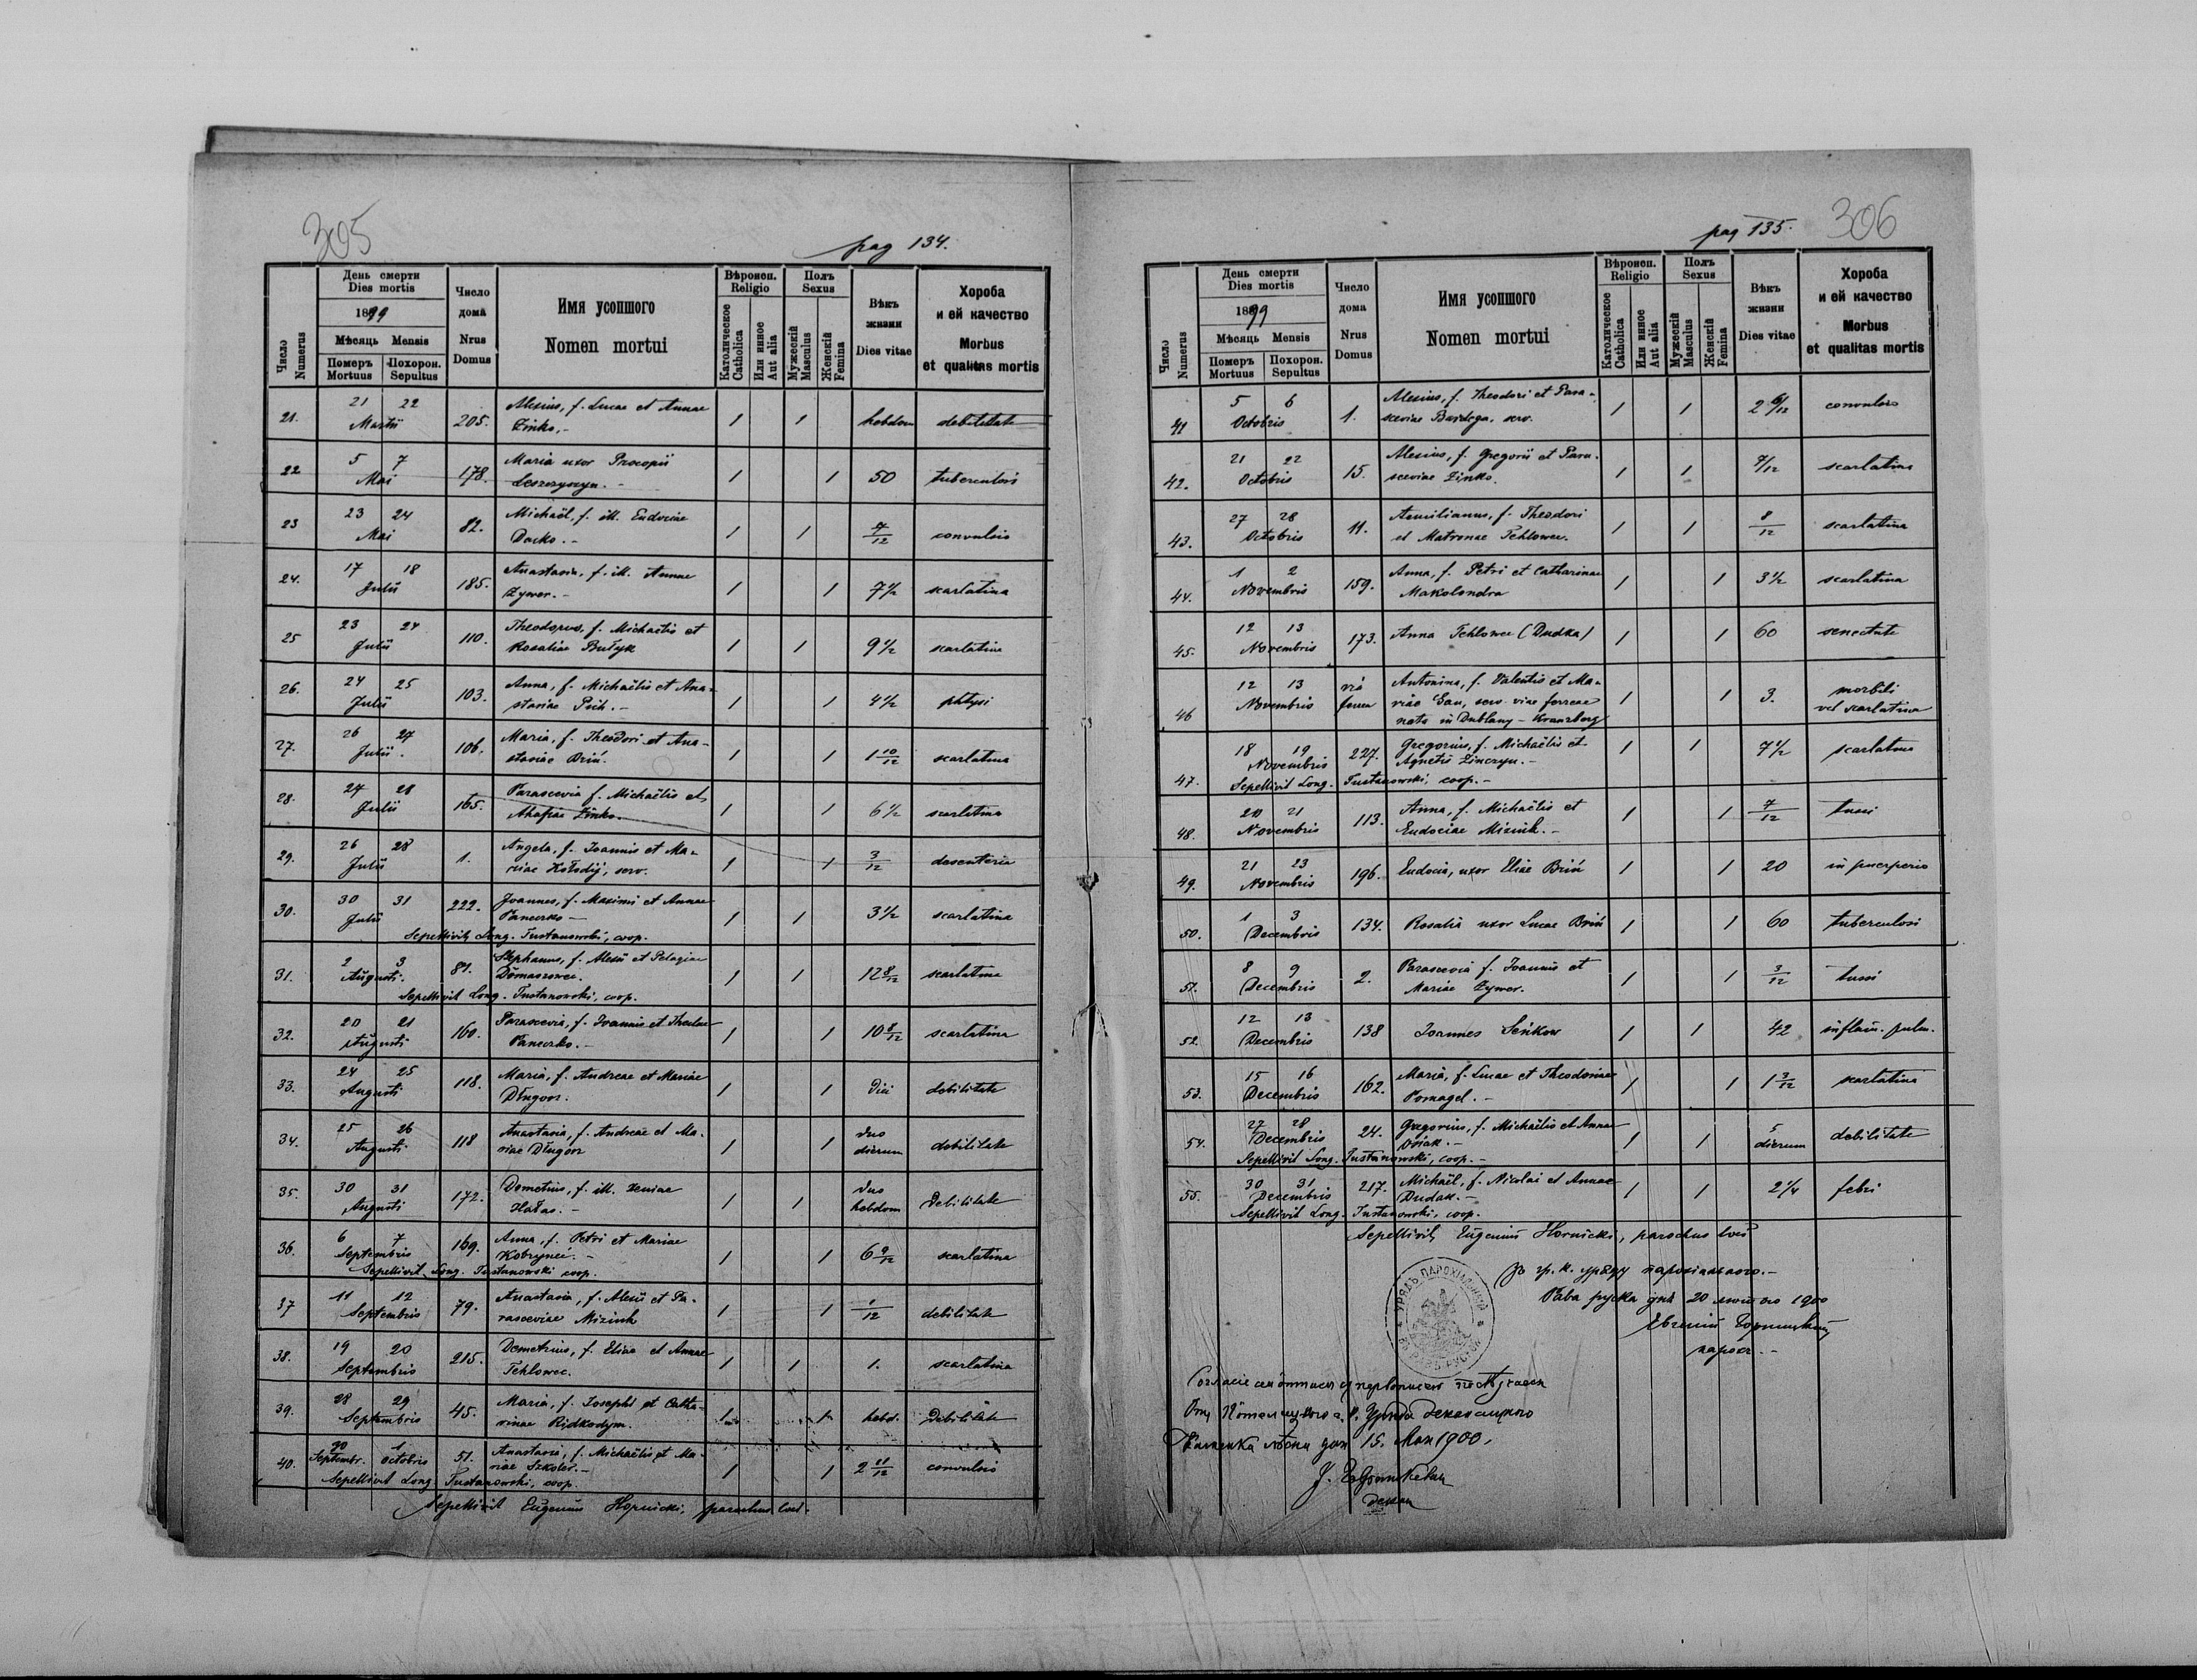 305
pag 134.
Число
Numerus
День смерти
Dies mortis
1899
Мѣсяць Mensis
Померъ Похорон.
Mortuus Sepultus
Число
дома
Nrus
Domus
Имя усопшого
Nomen mortui
Вѣроисп.
Religio
Католическое
Catholica
Или инное
Aut alia
Полъ
Sexus
Мужескій
Masculus
Женскій
Femina
Вѣкъ
жизни
Dies vitae
Хороба
и ей качество
Morbus
et qualitas mortis
21. 21 22 Martii 205. Alexius, f. Lucae et Annae 1 1 hebdom debilitate
Zinko.-
22 5 7 Mai 178. Maria uxor Procopii 1 1 50 tuberculosi
Leszczyszyn.-
23 23 24 Mai 82. Michaël, f. ill. Eudociae 1 1 7/12 convulsio
Dacko.-
24. 17 18 Julii 185. Anastasia, f. ill. Annae 1 1 7 1/2 scarlatina
Zywer.-
25 23 24 Julii 110. Theodorus, f. Michaëlis et 1 1 9 1/2 scarlatina
Rosaliae Bułyk
26. 24 25 Julii 103. Anna, f. Michaëlis et Ana- 1 1 4 1/2 phtysi
stasiae Psih.-
27. 26 27 Julii. 106. Maria, f. Theodori et Ana- 1 1 1 10/12 scarlatina
stasiae Briń.
28. 27 28 Julii 165. Parascevia f. Michaëlis et 1 1 6 1/2 scarlatina
Ahafiae Zinko.
29. 26 28 Julii 1. Angela, f. Joannis et Ma- 1 1 3/12 desenteria
riae Kołodij, serv.
30. 30 31 Julii 222. Joannes, f. Maximi et Annae 1 1 3 1/2 scarlatina
Paneczko -
Sepellivit Long. Tustanowski, coop.
31. 2 3 Augusti. 87. Stephanus, f. Alexii et Pelagiae 1 1 12 8/12 scarlatina
Domaszowec.
Sepellivit Long. Tustanowski, coop.
32. 20 21 Augusti 160. Parascevia, f. Joannis et Theclae 1 1 10 8/12 scarlatina
Paneczko.-
33. 24 25 Augusti 118. Maria, f. Andreae et Mariae 1 1 diei debilitate
Długosz.
34. 25 26 Augusti 118 Anastasia, f. Andreae et Ma- 1 1 duo dierum debilitate
riae Długosz
35. 30 31 Augusti 172. Demetrius, f. ill. Xeniae 1 1 duo hebdom debilitate
Hałas.-
36. 6 7 Septembris 169. Anna, f. Petri et Mariae 1 1 6 9/12 scarlatina
Kobryneć.-
Sepellivit Long. Tustanowski coop.
37 11 12 Septembris 79. Anastasia, f. Alexii et Pa- 1 1 1/12 debilitate
rasceviae Miziuk
38. 19 20 Septembris 215. Demetrius, f. Eliae et Annae 1 1 1. scarlatina
Tchlowec.
39. 28 29 Septembris 45. Maria, f. Josephi et Catha- 1 1 hebd. debilitate
rinae Ridkodym.
40. 30 1 Septembr. octobris 51. Anastasia, f. Michaëlis et Ma- 1 1 2 11/12 convulsio
riae
Sepellivit Long. Tustanowski, coop.
Sepellivit Eugenius Hornicki, parochus loci.
306
pag 135.
Число
Numerus
День смерти
Dies mortis
1899
Мѣсяць Mensis
Померъ Похорон.
Mortuus Sepultus
Число
дома
Nrus
Domus
Имя усопшого
Nomen mortui
Вѣроисп.
Religio
Католическое
Catholica
Или инное
Aut alia
Полъ
Sexus
Мужескій
Masculus
Женскій
Femina
Вѣкъ
жизни
Dies vitae
Хороба
и ей качество
Morbus
et qualitas mortis
41 5 6 Octobris 1. Alexius, f. Theodori et Para- 1 1 2 6/12 convulsio
sceviae Bardega, serv.
42. 21 22 Octobris 15. Alexius, f. Gregorii et Para- 1 1 7/12 scarlatina
sceviae Zinko.
43. 27 28 Octobris 11. Aemilianus, f. Theodori 1 1 8/12 scarlatina
et Matronae Tchlowec.
44. 1 2 Novembris 159. Anna, f. Petri et Catharinae 1 1 3 1/2 scarlatina
Makolondra
45. 12 13 Novembris 173. Anna Tchlowec (Dudka) 1 1 60 senectute
46 12 13 Novembris via ferrea Antonina, f. Valentis et Ma- 1 1 3. morbili
riae Gau, serv. viae ferreae vel scarlatina
nata in Dublany - Kranzberg
47. 18 19 Novembris 227. Gregorius, f. Michaëlis et 1 1 7 1/2 scarlatina
Agnetis Zinczyn.-
Sepellivit Long. Tustanowski, coop.-
48. 20 21 Novembris 113. Anna, f. Michaëlis et 1 1 7/12 tussi
Eudociae Miziuk.-
49. 21 23 Novembris 196. Eudocia, uxor Eliae Briń 1 1 20 in puerperio
50. 1 3 Decembris 134. Rosalia uxor Lucae Briń 1 1 60 tuberculosi
51. 8 9 Decembris 2. Parascevia f. Joannis et 1 1 3/12 tussi
Mariae Zywer.
52. 12 13 Decembris 138 Joannes Seńkow 1 1 42 inflam. pulm.
53. 15 16 Decembris 162. Maria, f. Lucae et Theodosiae 1 1 1 3/12 scarlatina
Pomagel.-
54. 27 28 Decembris 24. Gregorius, f. Michaëlis et Annae 1 1 5 dierum debilitate
Sepellivit Long. Tustanowski, coop.-
55. 30 31 Decembris 217. Michaël, f. Nicolai et Annae 1 1 2 1/4 febri
Dudak.-
Sepellivit Long. Tustanowski, coop.
Sepellivit Eugenius Hornicki, parochus loci
Зъ гр. к. уряду парохіяльного.-
Рава руска дня 20 1900
Евгеній Горницкій
парох.-
дня 15. Мая 1900.
декан